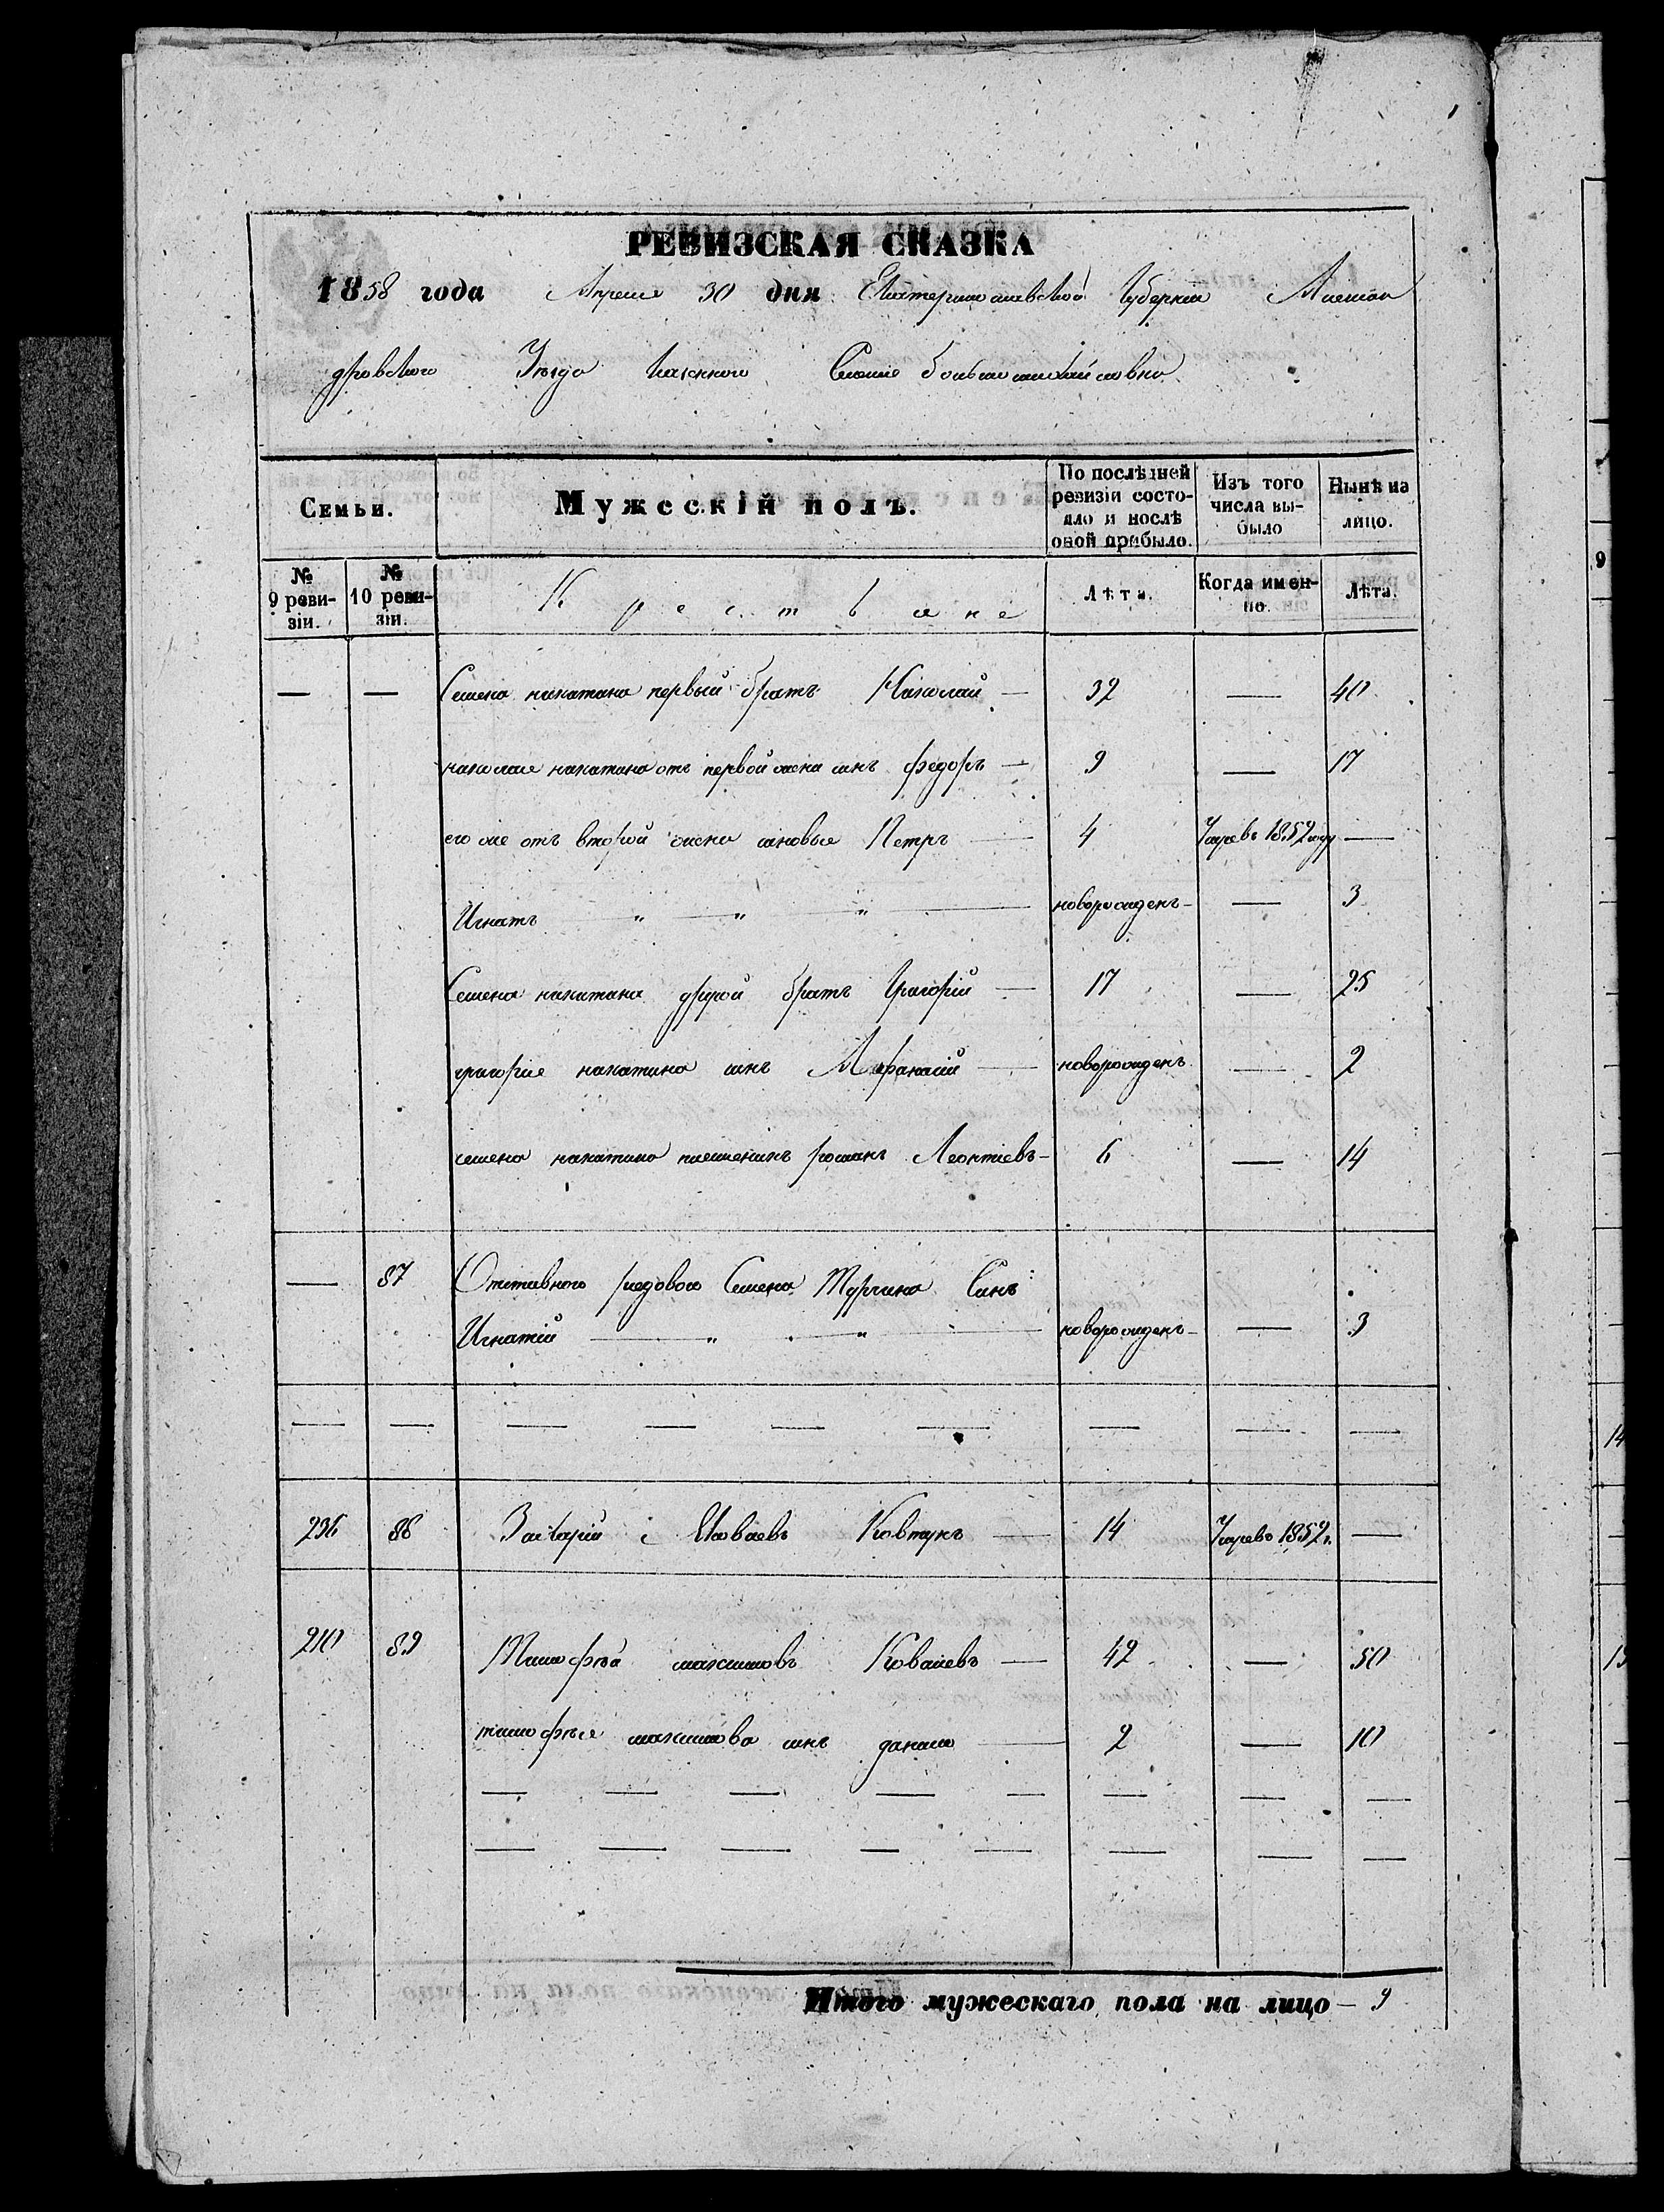 РЕВИЗСКАЯ СКАЗКА
1858 года Апреля 30 дня Екатеринославской Губернии Алексан
дровского Уезда Казенного Селения большемихайловки
Семьи. Мужескій полъ. По послѣдней ревизіи состояло и послѣ оной прибыло. Изъ того числа выбыло Нынѣ на лицо.
№ 9 ревизіи. № 10 ревизіи. Крестьяне Лѣта. Когда именно. Лѣта.
— — Семена никитина первый братъ Николай — 32 — 40
николая никитина отъ первой жены сынъ федоръ — 9 — 17
его же отъ второй жены сыновья Петръ — 4 Умръ въ 1852 году —
Игнатъ " " " — новорожденъ — — 3
Семена никитина другой братъ Григорій — 17 — 25
григорія никитина сынъ Афанасій — новорожденъ — 2
семена никитина племеникъ романъ Леонтіевъ — 6 — 14
— 87 Отставного рядового Семена Турчина Сынъ:
Игнатій — " — " — новорожденъ — — 3
— — — — — — — — —
236 88 Захарій Яковлевъ Ковтунъ — 14 Умръ въ 1852 г. —
210 89 Тимофѣй максимовъ Ковалевъ — 42 — 50
тимофѣя максимова сынъ данило — 2 — 10
— — — — — — — —
— — — — — — — —
Итого мужескаго пола на лицо — 9
9
14